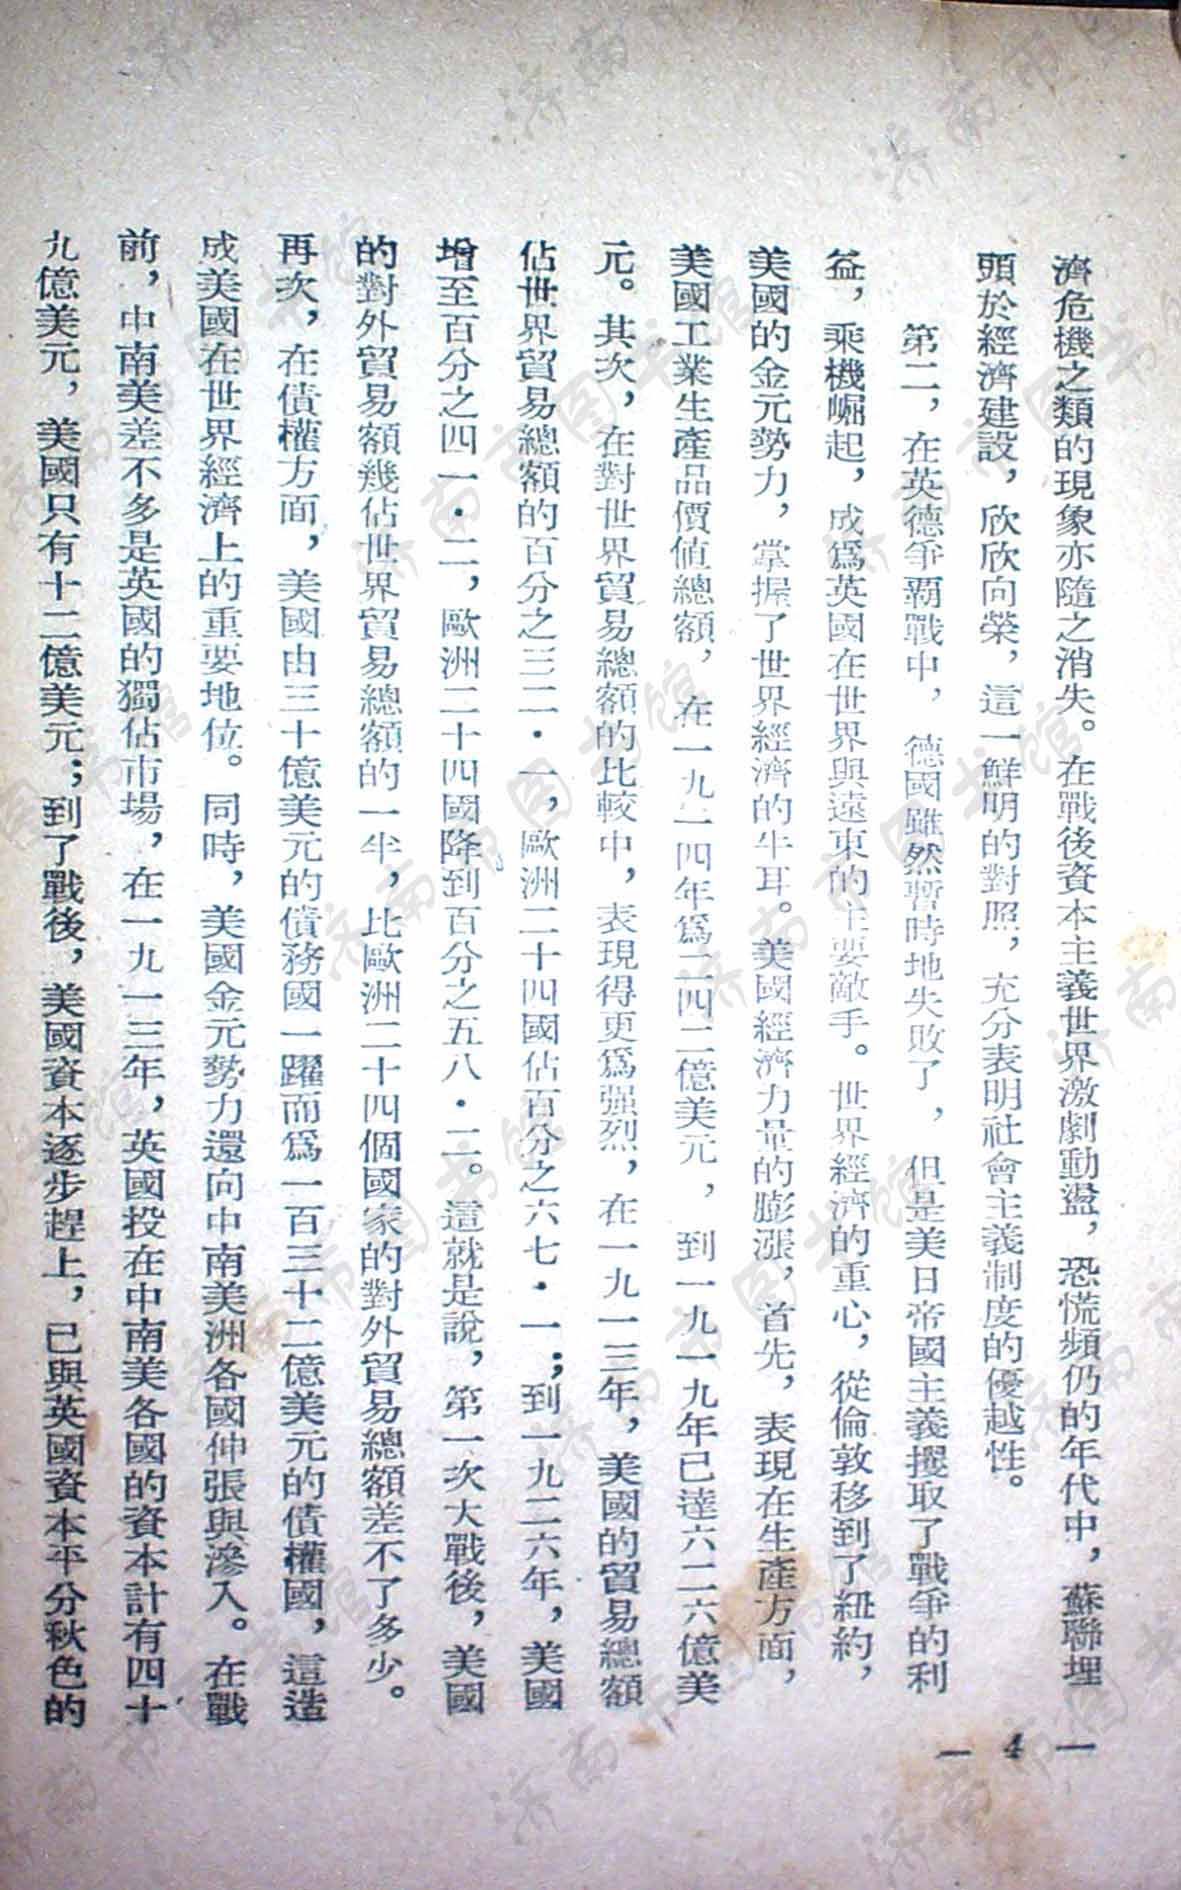 濟危機之類的現象亦隨之消失。在戰後資本主義世界激劇動盪，恐慌頻仍的年代中，蘇聯埋
頭於經濟建設，欣欣向榮，這一鮮明的對照，充分表明社會主義制度的優越性。
第二，在英德爭覇戰中，德國雖然暫時地失敗了，但是美日帝國主義攫取了戰爭的利
益，乘機崛起，成爲英國在世界與遠東的主要敵手。世界經濟的重心，從倫敦移到了紐約，
美國的金元勢力，掌握了世界經濟的牛耳。美國經濟力量的膨漲，首先，表現在生產方面，
美國工業生產品價値總額，在一九一四年爲二四二億美元，到一九一九年已達六二六億美
元。其次，在對世界貿易總額的比較中，表現得更爲强烈，在一九一三年，美國的貿易總額
佔世界貿易總額的百分之三二·一，歐洲二十四國佔百分之六七·一；到一九二六年，美國
增至百分之四一·二，歐洲二十四國降到百分之五八·二。這就是說，第一次大戰後，美國
的對外貿易額幾佔世界貿易總額的一半，比歐洲二十四個國家的對外貿易總額差不了多少。
再次，在債權方面，美國由三十億美元的債務國一躍而爲一百三十二億美元的債權國，這造
成美國在世界經濟上的重要地位。同時，美國金元勢力還向中南美洲各國伸張與滲入。在戰
前，中南美差不多是英國的獨佔市場，在一九一三年，英國投在中南美各國的資本計有四十
九億美元，美國只有十二億美元；到了戰後，美國資本逐步趕上，已與英國資本平分秋色的
— 4 —
济南市图书馆